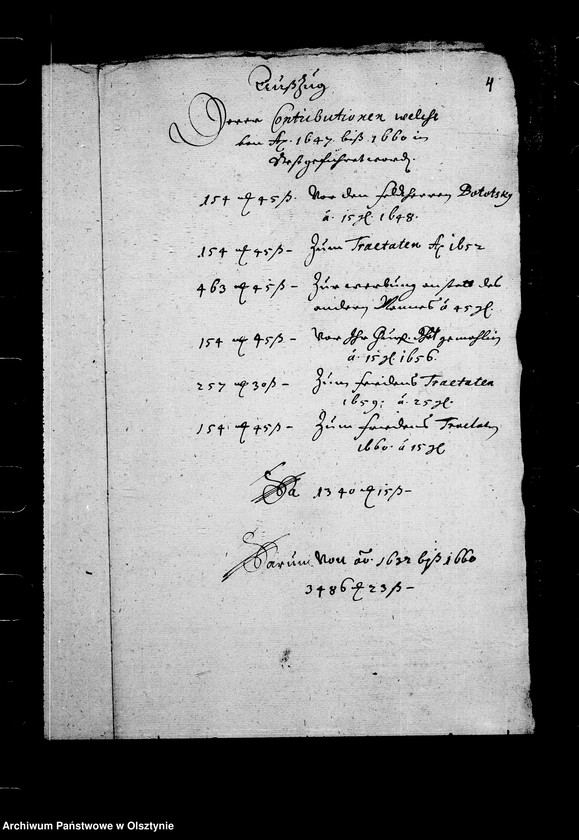 4
Außzug
Derer Contributionen welche
ben Ao. 1647. biß 1660 in
Rest geführet word.
154 ₰ 45 ß. Vor den Feldherren Pototsky
á. 15 gl. 1648.
154 ₰ 45 ß – Zum Tractaten Ao 1652
463 ₰ 45 ß – Zur werbung anstatt des
andern Mannes á 45 gl.
154 ₰ 45 ß – Vor Ihr Gemahlin
á. 15 gl. 1656.
257 ₰ 30 ß – Zum friedens Tractaten
1659: á. 25 gl.
154 ₰ 45 ß – Zum friedens Tractaten
1660. á 15 gl
Sa 1340 ₰ 15 ß –
Von ao. 1632 biß 1660
3486 ₰ 23 ß –
Archiwum Państwowe w Olsztynie